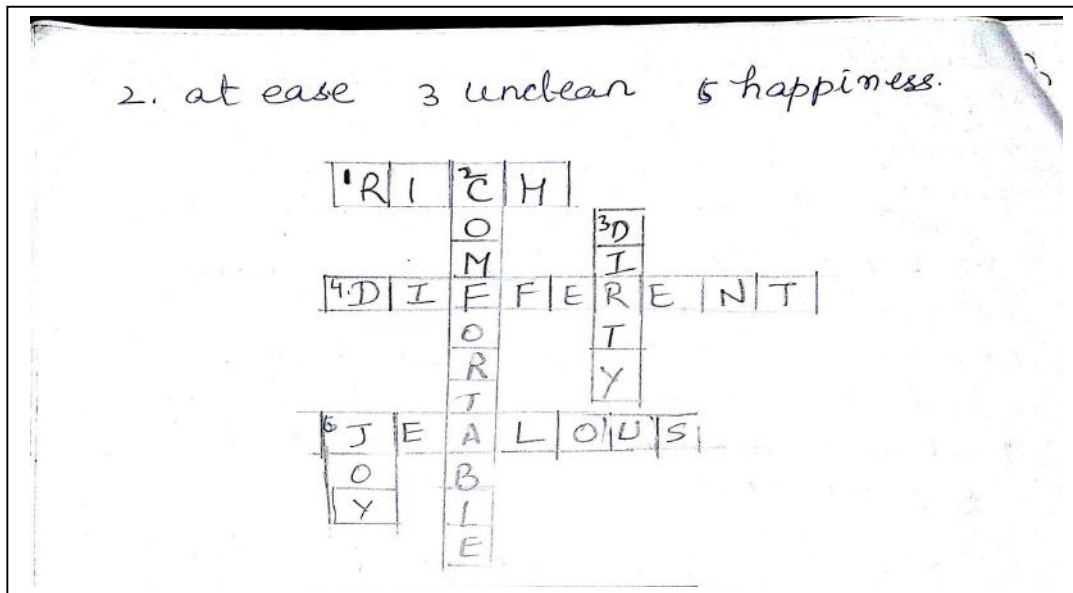 2. at ease 3 unclean 5 happiness.
1 R I 2 C H
O 3 D
M I
4. D I F F E R E N T
O T
R Y
T
5 J E A L O U S
O B
Y L
E